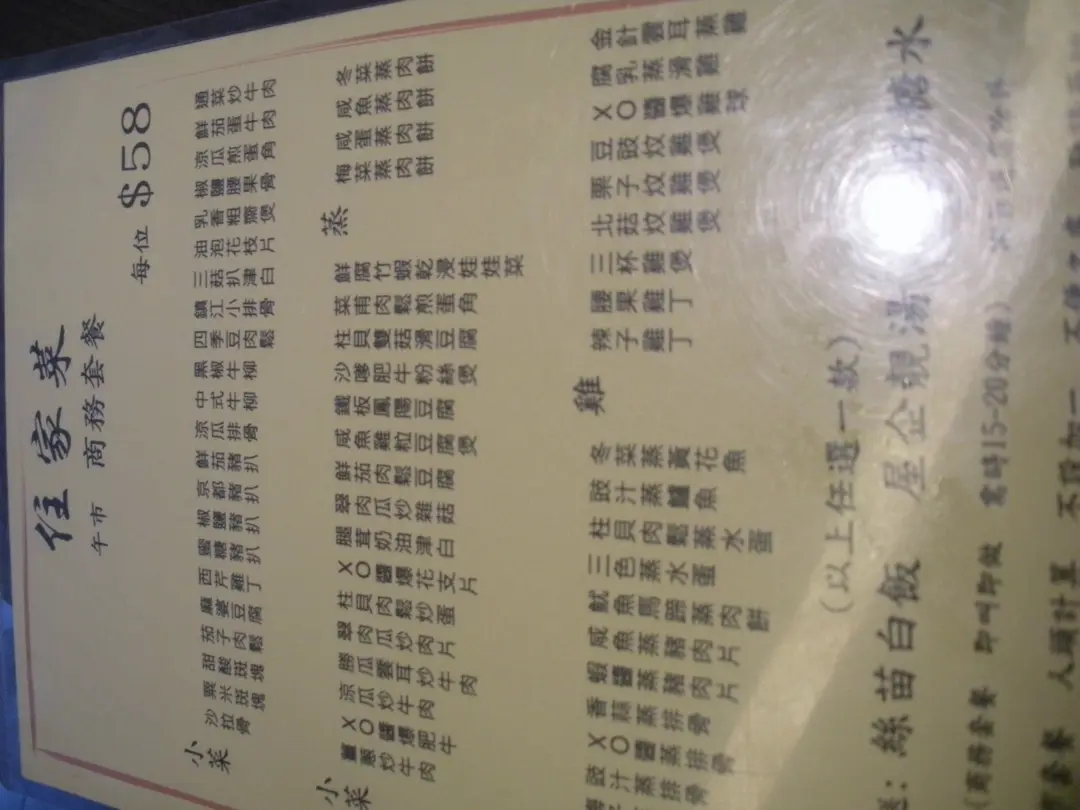 住家菜
午市 商務套餐
每位 $58
小菜
沙拉骨
粟米斑塊
甜酸斑塊
茄子肉鬆
麻婆豆腐
西芹雞丁
蜜糖豬扒
椒鹽豬扒
京都豬扒
鮮茄豬扒
涼瓜排骨
中式牛柳
黑椒牛柳
四季豆肉鬆
鎮江小排骨
三菇扒津白
油泡花枝片
乳香粗齋煲
椒鹽腰果骨
涼瓜煎蛋角
鮮茄蛋牛肉
通菜炒牛肉
小菜
薑蔥炒牛肉
XO醬爆肥牛
涼瓜炒牛肉
勝瓜雲耳炒牛肉
翠肉瓜炒肉片
柱貝肉鬆炒蛋
XO醬爆花支片
腿茸奶油津白
翠肉瓜炒雜菇
鮮茄肉鬆豆腐
咸魚雞粒豆腐煲
鐵板鳳陽豆腐
沙嗲肥牛粉絲煲
柱貝雙菇滑豆腐
菜甫肉鬆煎蛋角
鮮腐竹蝦乾浸娃娃菜
蒸
梅菜蒸肉餅
咸蛋蒸肉餅
咸魚蒸肉餅
冬菜蒸肉餅
豉汁蒸排骨
XO醬蒸排骨
香蒜蒸排骨
蝦醬蒸豬肉片
咸魚蒸豬肉片
魷魚馬蹄蒸肉餅
三色蒸水蛋
柱貝肉鬆蒸水蛋
豉汁蒸鱸魚
冬菜蒸黃花魚
雞
辣子雞丁
腰果雞丁
三杯雞煲
北菇炆雞煲
栗子炆雞煲
豆豉炆雞煲
XO醬爆雞球
腐乳蒸滑雞
金針雲耳蒸雞
(以上任選一款)
絲苗白飯 屋企靚湯 糖水
(商務套餐 即叫即做 需時15-20分鐘)
套餐 人頭計算 不設加一